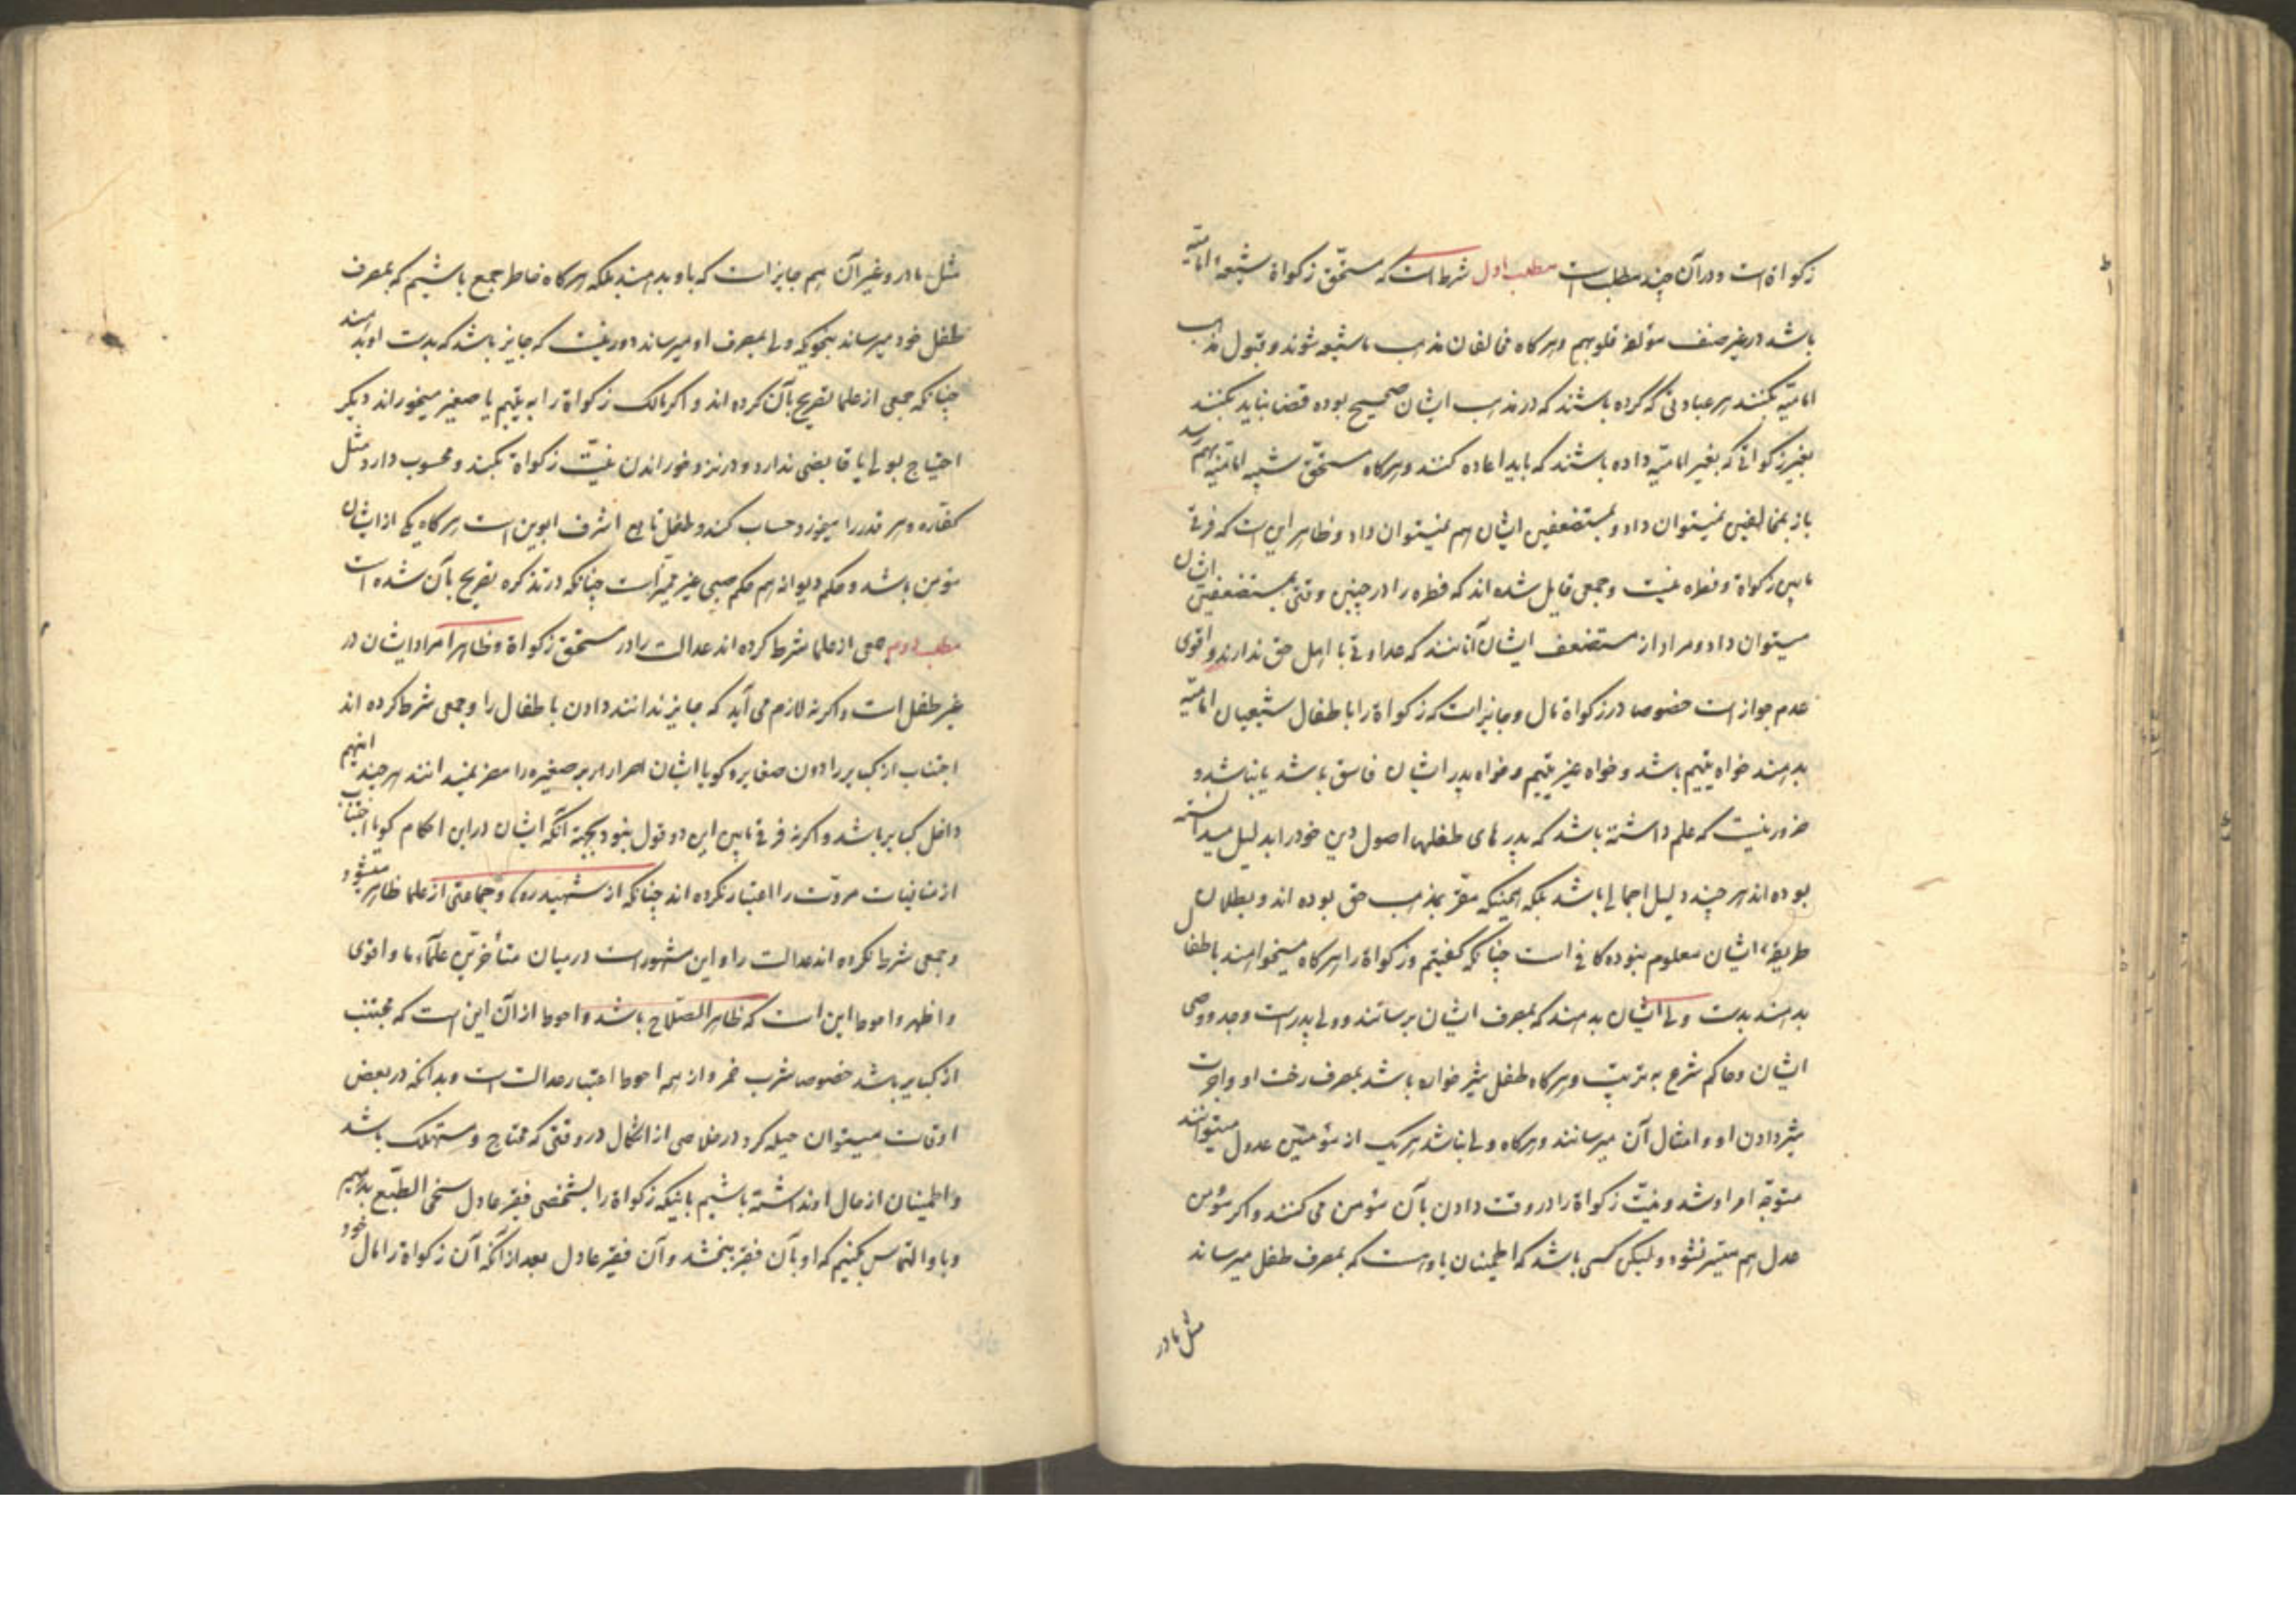 زکواة است و در آن چند مطلب است مطلب اول شرط است که مستحق زکواة شیعهٔ امامیّه
باشد در غیر صنف مؤلفه قلوبهم و هر گاه مخالفان مذهب ما شیعه شوند و قبول مذهب
امامیّه بکنند هر عبادتی که کرده باشند که در مذهب ایشان صحیح بوده قضا نباید بکنند
بغیر زکواتی که بغیر امامیّه داده باشند که باید اعاده کنند و هرگاه مستحق شیعه امامیّه بهم نرسد
باز بمخالفین نمیتوان داد و بمستضعفین ایشان هم نمیتوان داد و ظاهر این است که فرقی
مابین زکواة و فطره نیست و جمعی قایل شده اند که فطره را در چنین وقتی بمستضعفین ایشان
میتوان داد و مراد از مستضعف ایشان آنانند که عداوتی با اهل حق ندارند و اقوی
عدم جواز است خصوصا در زکواة مال و جایز است که زکواة را باطفال شیعیان امامیّه
بدهند خواه یتیم باشد و خواه غیر یتیم و خواه پدر ایشان فاسق باشد یا نباشد و
ضرور نیست که علم داشته باشد که پدر های طفلها اصول دین خود را بدلیل میدانسته
بوده اند هر چند دلیل اجمالی باشد بلکه همینکه مقرّ بمذهب حق بوده اند و بطلان
طریقهٔ ایشان معلوم نبوده کافی است چنانکه گفتیم و زکواة را هرگاه میخواهند باطفال
بدهند بدست ولی ایشان بدهند که بمصرف ایشان برسانند و ولی پدر است و جد و وصی
ایشان و حاکم شرع به ترتیب و هرگاه طفل شیر خواره باشد بمصرف رخت او و اجرت
شیر دادن او و امثال آن میرسانند و هرگاه ولی نباشد هر یک از مؤمنین عدول میتوانند
متوجّه امر او شد و نیّت زکواة را در وقت دادن بآن مؤمن می کنند و اگر مؤمن
عدل هم میسر نشود و لیکن کسی باشد که اطمینان باو هست که بمصرف طفل میرساند
مثل مادر
مثل مادر و غیر آن هم جایز است که باو بدهند بلکه هرگاه خاطر جمع باشیم که بمصرف
طفل خود میرساند بنحویکه ولی بمصرف او میرساند دور نیست که جایز باشد که بدست او بدهند
چنانکه جمعی از علما تصریح بآن کرده اند و اگر مالک زکواة را به یتیم یا صغیر میخوراند دیگر
احتیاج بولی یا قابضی ندارد و در نزد خوراندن نیّت زکواة بکند و محسوب دارد مثل
کفاره و هر قدر را میخورد حساب کند و طفل تابع اشرف ابوین است هرگاه یکی از ایشان
مؤمن باشد و حکم دیوانه هم حکم صبی غیر ممیّز است چنانکه در تذکره تصریح بآن شده است
مطلب دوم جمعی از علما شرط کرده اند عدالت را در مستحق زکواة و ظاهرا مراد ایشان در
غیر طفل است و اگر نه لازم می آید که جایز ندانند دادن باطفال را و جمعی شرط کرده اند
اجتناب از کبایر را دون صغایر و گویا ایشان اصرار بر صغیره را مضر نمیدانند هر چند اینهم
داخل کبایر باشد و اگر نه فرقی مابین این دو قول نبود بجهة آنکه ایشان در این احکام گویا اجتناب
از منافیات مروّت را اعتبار نکرده اند چنانکه از شهید ره و جماعتی از علما ظاهر میشود
و جمعی شرط نکرده اند عدالت را و این مشهور است در میان متأخرین علماء ما و اقوی
و اظهر و احوط این است که ظاهر الصّلاح باشد و احوط از آن این است که مجتنب
از کبایر باشد خصوصا شرب خمر و از همه احوط اعتبار عدالت است و بدانکه در بعض
اوقات میتوان حیله کرد در خلاصی از اشکال در وقتی که محتاج و مستهلک باشد
و اطمینان از حال او نداشته باشیم باینکه زکواة را بشخصی فقیر عادل سخی الطبع بدهیم
و باو التماس بکنیم که او بآن فقیر ببخشد و آن فقیر عادل بعد از آنکه آن زکواة را مال خود